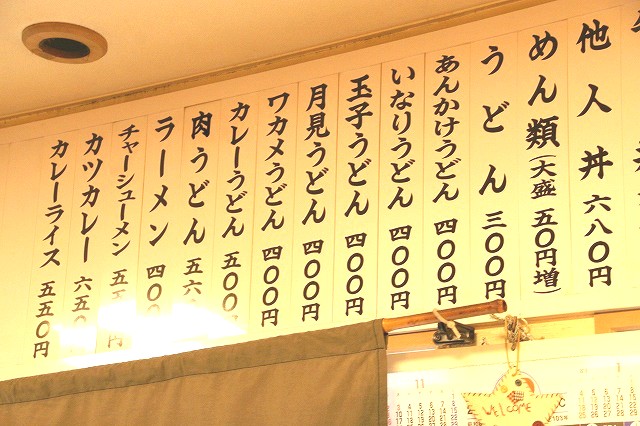 他人丼 六八〇円
めん類(大盛 五〇円増)
うどん 三〇〇円
あんかけうどん 四〇〇円
いなりうどん 四〇〇円
玉子うどん 四〇〇円
月見うどん 四〇〇円
ワカメうどん 四〇〇円
カレーうどん 五〇〇
肉うどん 五六
ラーメン 四〇〇
チャーシューメン 五五 円
カツカレー 六五〇
カレーライス 五五〇円
11
WELCOME